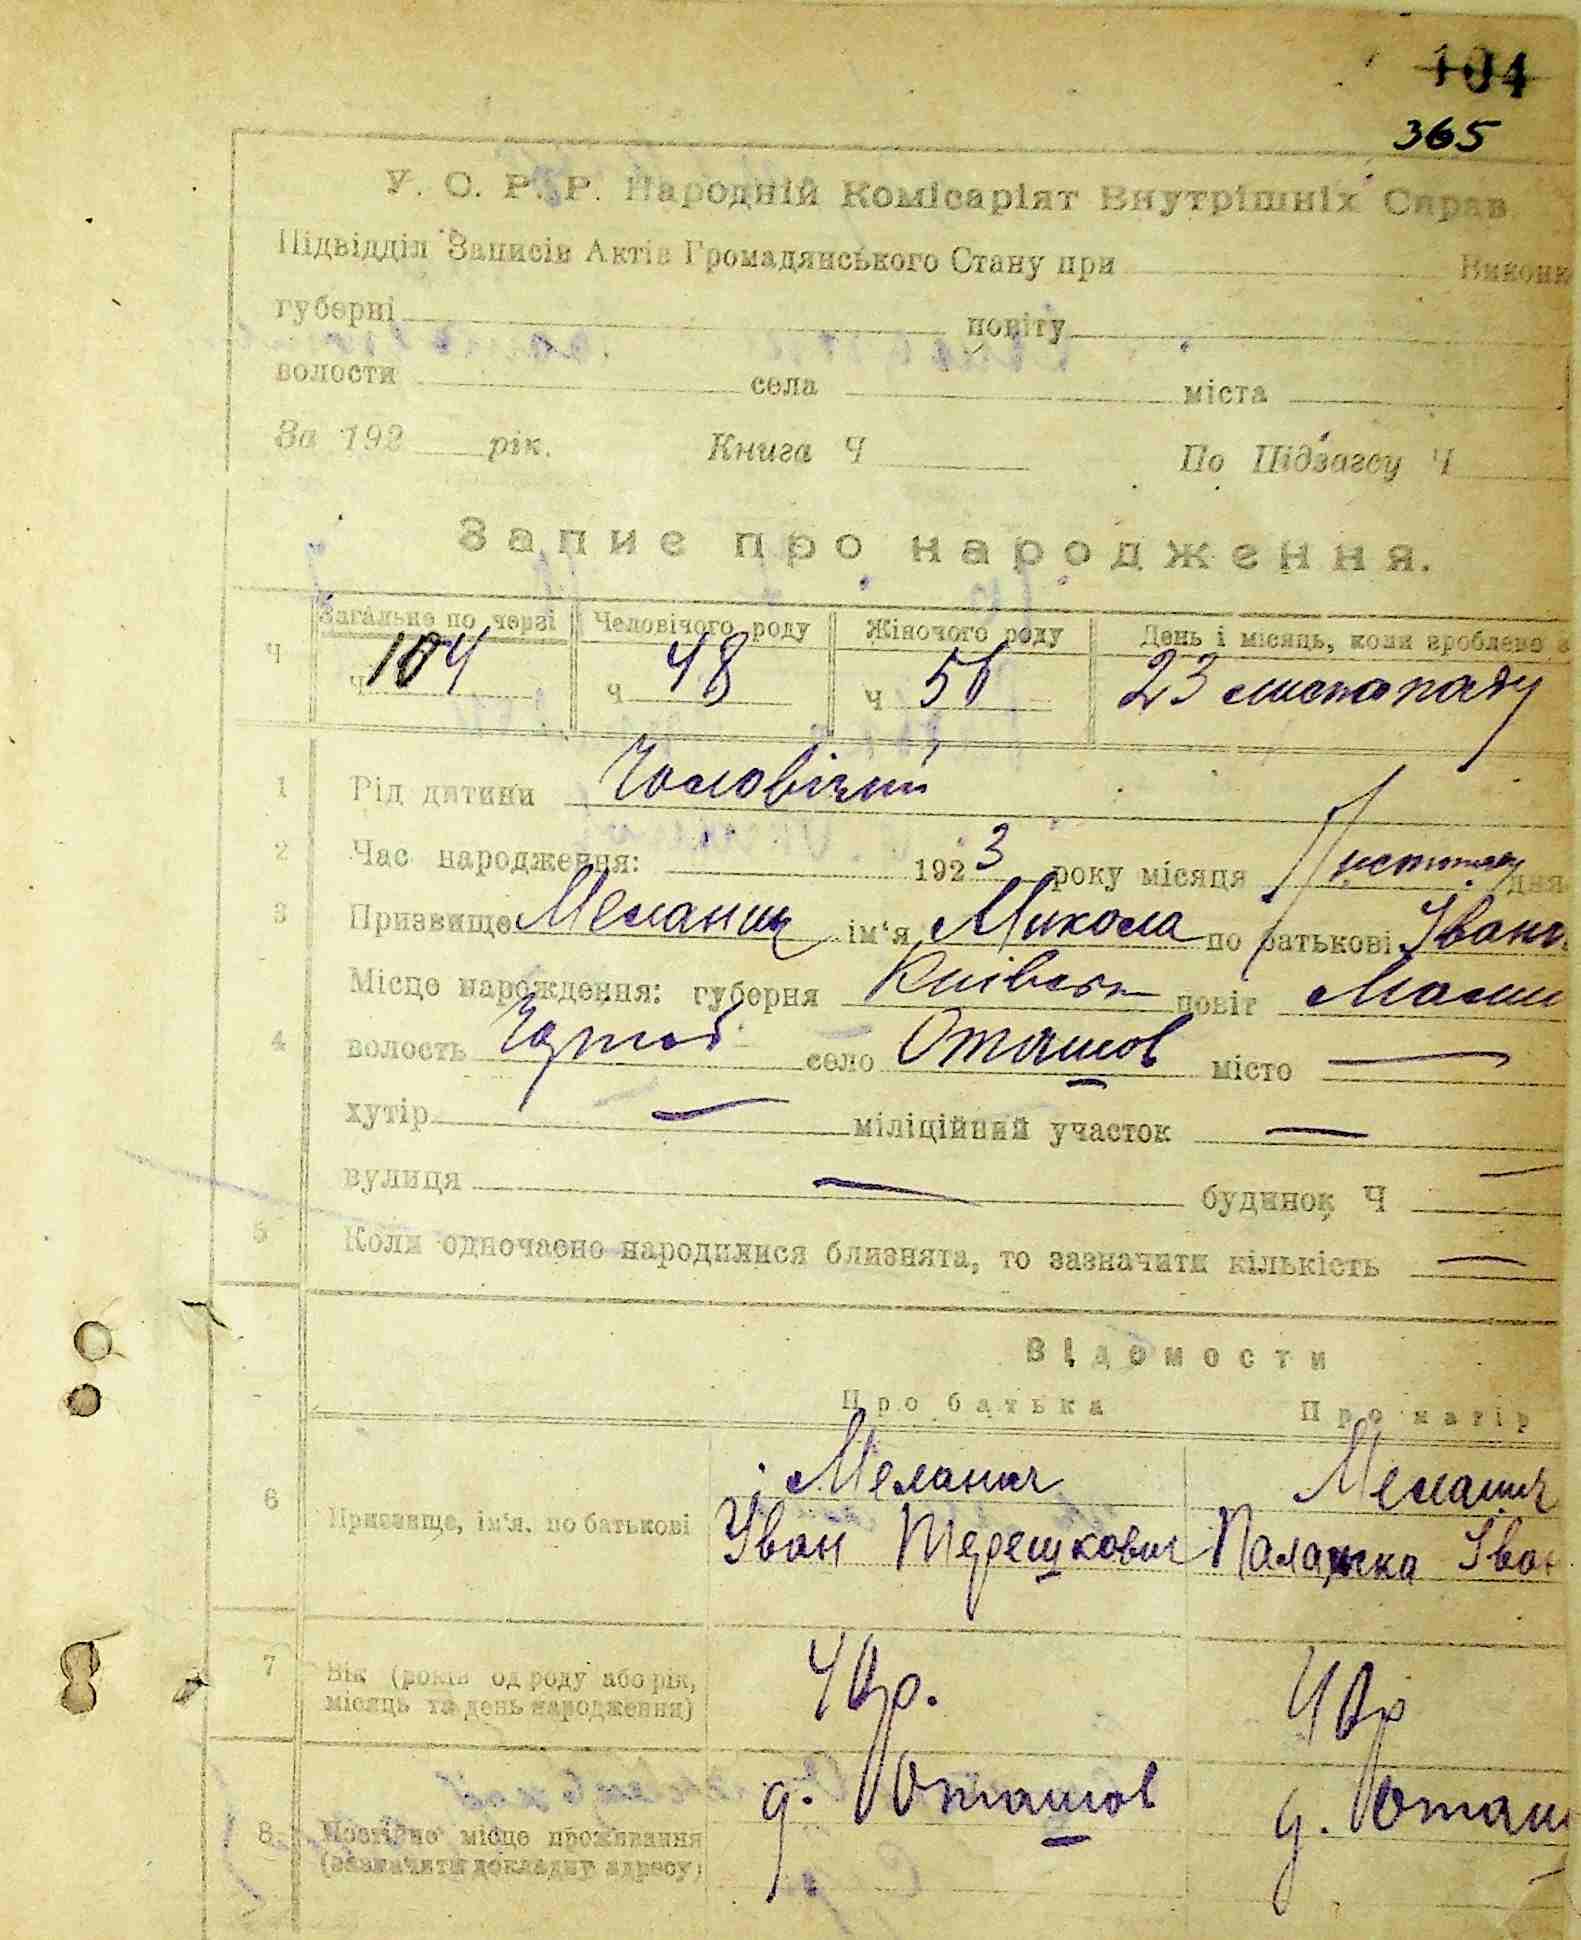 104
365
У. С. Р. Р. Народній Комісаріят Внутрішніх Справ
Підвідділ Записів Актів Громадянського Стану при Виконк
губерні повіту
волости села міста
За 192 рік. Книга Ч По Підзагсу Ч
Запис про народження.
Загальне по черзі Человічого роду Жіночого роду День і місяць, коли зроблено з
Ч ч 104 ч 48 ч 56 23 листопаду
1 Рід дитини Чоловічий
2 Час народження: 1923 року місяця Листопаду дня
3 Призвище Меланич ім'я Микола по батькові Іванч
Місце нарождення: губерня Київськ повіт Малин
4 волость село Оташов місто —
хутір — міліційний участок —
вулиця — будинок Ч —
5 Коли одночасно народилися близнята, то зазначити кількість —
Відомости
Про батька Про матір
Меланич Меланич
6 Призвище, ім'я, по батькові Іван Терешкович Палажка Іван
7 Вік (років од роду або рік, 40р. 40р
місяць та день народження)
д. Оташов д. Оташ
8 Постійне місце проживання
(зазначити докладну адресу)